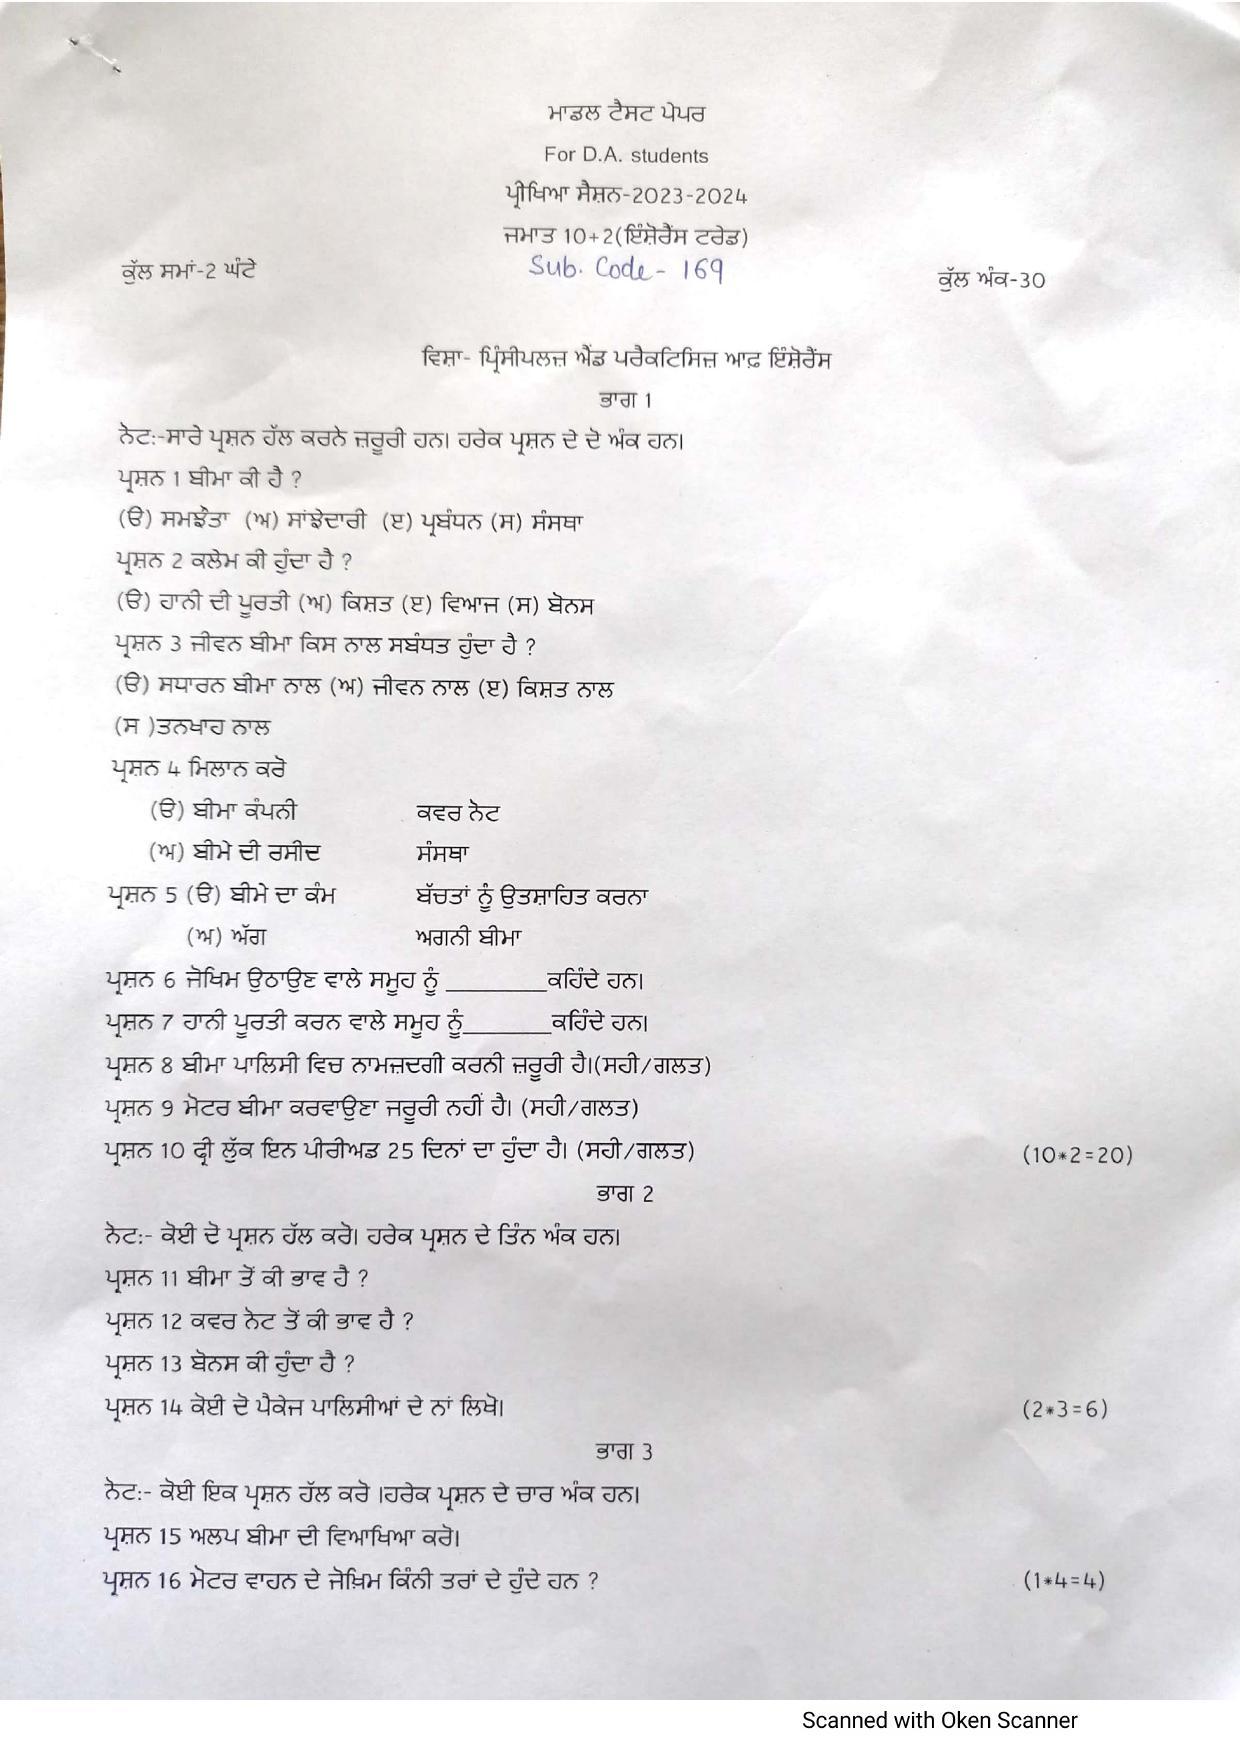 ਮਾਡਲ ਟੈਸਟ ਪੇਪਰ
For D.A. students
ਪ੍ਰੀਖਿਆ ਸੈਸ਼ਨ-2023-2024
ਜਮਾਤ 10+2(ਇੰਸ਼ੋਰੈਂਸ ਟਰੇਡ)
ਕੁੱਲ ਸਮਾਂ-2 ਘੰਟੇ Sub. Code - 169 ਕੁੱਲ ਅੰਕ-30
ਵਿਸ਼ਾ- ਪ੍ਰਿੰਸੀਪਲਜ਼ ਐਂਡ ਪਰੈਕਟਿਸਿਜ਼ ਆਫ਼ ਇੰਸ਼ੋਰੈਂਸ
ਭਾਗ 1
ਨੋਟ:-ਸਾਰੇ ਪ੍ਰਸ਼ਨ ਹੱਲ ਕਰਨੇ ਜ਼ਰੂਰੀ ਹਨ। ਹਰੇਕ ਪ੍ਰਸ਼ਨ ਦੇ ਦੋ ਅੰਕ ਹਨ।
ਪ੍ਰਸ਼ਨ 1 ਬੀਮਾ ਕੀ ਹੈ ?
(ੳ) ਸਮਝੌਤਾ (ਅ) ਸਾਂਝੇਦਾਰੀ (ੲ) ਪ੍ਰਬੰਧਨ (ਸ) ਸੰਸਥਾ
ਪ੍ਰਸ਼ਨ 2 ਕਲੇਮ ਕੀ ਹੁੰਦਾ ਹੈ ?
(ੳ) ਹਾਨੀ ਦੀ ਪੂਰਤੀ (ਅ) ਕਿਸ਼ਤ (ੲ) ਵਿਆਜ (ਸ) ਬੋਨਸ
ਪ੍ਰਸ਼ਨ 3 ਜੀਵਨ ਬੀਮਾ ਕਿਸ ਨਾਲ ਸਬੰਧਤ ਹੁੰਦਾ ਹੈ ?
(ੳ) ਸਧਾਰਨ ਬੀਮਾ ਨਾਲ (ਅ) ਜੀਵਨ ਨਾਲ (ੲ) ਕਿਸ਼ਤ ਨਾਲ
(ਸ )ਤਨਖਾਹ ਨਾਲ
ਪ੍ਰਸ਼ਨ 4 ਮਿਲਾਨ ਕਰੋ
(ੳ) ਬੀਮਾ ਕੰਪਨੀ ਕਵਰ ਨੋਟ
(ਅ) ਬੀਮੇ ਦੀ ਰਸੀਦ ਸੰਸਥਾ
ਪ੍ਰਸ਼ਨ 5 (ੳ) ਬੀਮੇ ਦਾ ਕੰਮ ਬੱਚਤਾਂ ਨੂੰ ਉਤਸ਼ਾਹਿਤ ਕਰਨਾ
(ਅ) ਅੱਗ ਅਗਨੀ ਬੀਮਾ
ਪ੍ਰਸ਼ਨ 6 ਜੋਖਿਮ ਉਠਾਉਣ ਵਾਲੇ ਸਮੂਹ ਨੂੰ ________ਕਹਿੰਦੇ ਹਨ।
ਪ੍ਰਸ਼ਨ 7 ਹਾਨੀ ਪੂਰਤੀ ਕਰਨ ਵਾਲੇ ਸਮੂਹ ਨੂੰ_______ਕਹਿੰਦੇ ਹਨ।
ਪ੍ਰਸ਼ਨ 8 ਬੀਮਾ ਪਾਲਿਸੀ ਵਿਚ ਨਾਮਜ਼ਦਗੀ ਕਰਨੀ ਜ਼ਰੂਰੀ ਹੈ।(ਸਹੀ/ਗਲਤ)
ਪ੍ਰਸ਼ਨ 9 ਮੋਟਰ ਬੀਮਾ ਕਰਵਾਉਣਾ ਜਰੂਰੀ ਨਹੀਂ ਹੈ। (ਸਹੀ/ਗਲਤ)
ਪ੍ਰਸ਼ਨ 10 ਫ੍ਰੀ ਲੁੱਕ ਇਨ ਪੀਰੀਅਡ 25 ਦਿਨਾਂ ਦਾ ਹੁੰਦਾ ਹੈ। (ਸਹੀ/ਗਲਤ) (10*2=20)
ਭਾਗ 2
ਨੋਟ:- ਕੋਈ ਦੋ ਪ੍ਰਸ਼ਨ ਹੱਲ ਕਰੋ। ਹਰੇਕ ਪ੍ਰਸ਼ਨ ਦੇ ਤਿੰਨ ਅੰਕ ਹਨ।
ਪ੍ਰਸ਼ਨ 11 ਬੀਮਾ ਤੋਂ ਕੀ ਭਾਵ ਹੈ ?
ਪ੍ਰਸ਼ਨ 12 ਕਵਰ ਨੋਟ ਤੋਂ ਕੀ ਭਾਵ ਹੈ ?
ਪ੍ਰਸ਼ਨ 13 ਬੋਨਸ ਕੀ ਹੁੰਦਾ ਹੈ ?
ਪ੍ਰਸ਼ਨ 14 ਕੋਈ ਦੋ ਪੈਕੇਜ ਪਾਲਿਸੀਆਂ ਦੇ ਨਾਂ ਲਿਖੋ। (2*3=6)
ਭਾਗ 3
ਨੋਟ:- ਕੋਈ ਇਕ ਪ੍ਰਸ਼ਨ ਹੱਲ ਕਰੋ ।ਹਰੇਕ ਪ੍ਰਸ਼ਨ ਦੇ ਚਾਰ ਅੰਕ ਹਨ।
ਪ੍ਰਸ਼ਨ 15 ਅਲਪ ਬੀਮਾ ਦੀ ਵਿਆਖਿਆ ਕਰੋ।
ਪ੍ਰਸ਼ਨ 16 ਮੋਟਰ ਵਾਹਨ ਦੇ ਜੋਖ਼ਿਮ ਕਿੰਨੀ ਤਰਾਂ ਦੇ ਹੁੰਦੇ ਹਨ ? (1*4=4)
Scanned with Oken Scanner